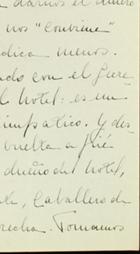 darnos el dinero
nos "conviene"
dica menos.
ado con el Gere
l hotel: es un
simpatico. Y des
vuelta a pié
dueño del hotel,
Caballero de
recha. Tomamos